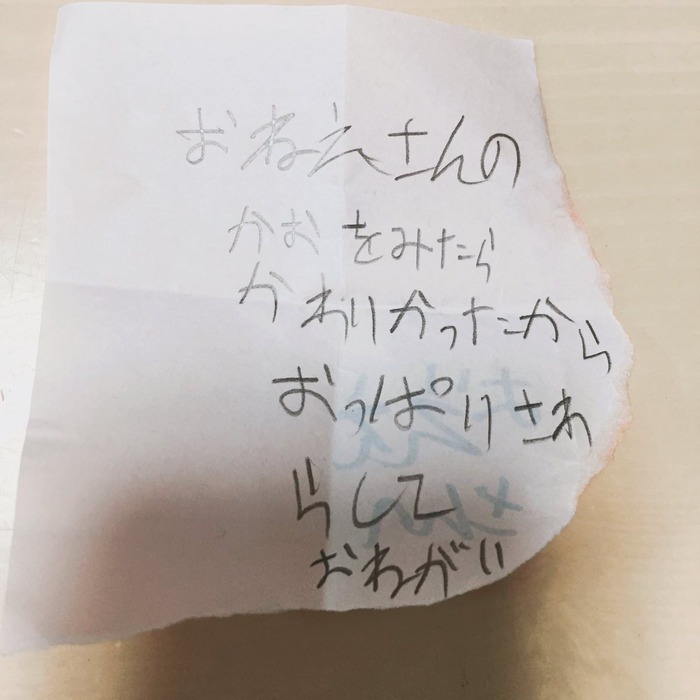 おねえさんの
かおをみたら
かわいかったから
おっぱいさわ
らして
おねがい